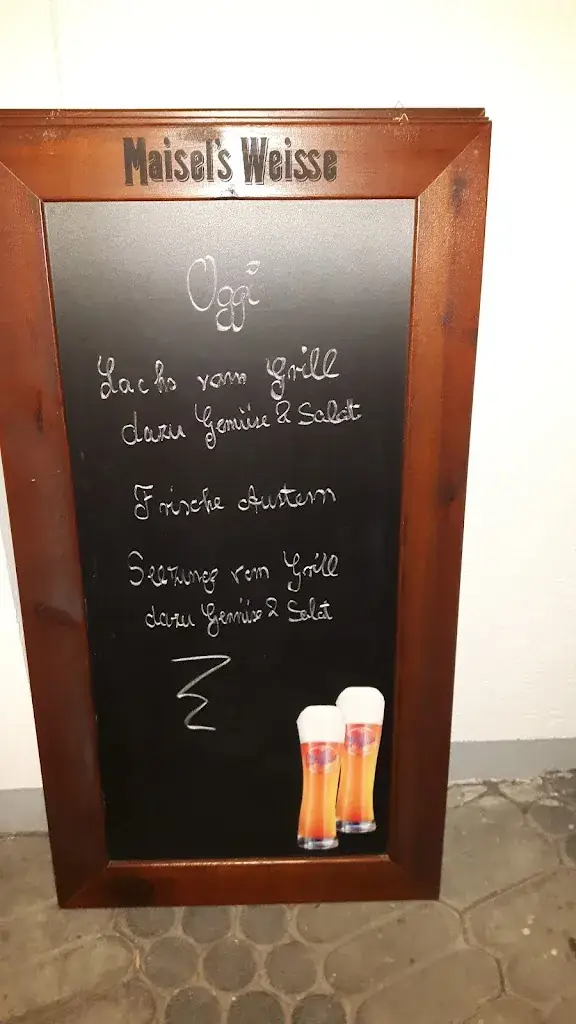 Maisel's Weisse
Oggi
Lachs vom Grill
dazu Gemüse & Salat
Frische Austern
Seezunge vom Grill
dazu Gemüse & Salat